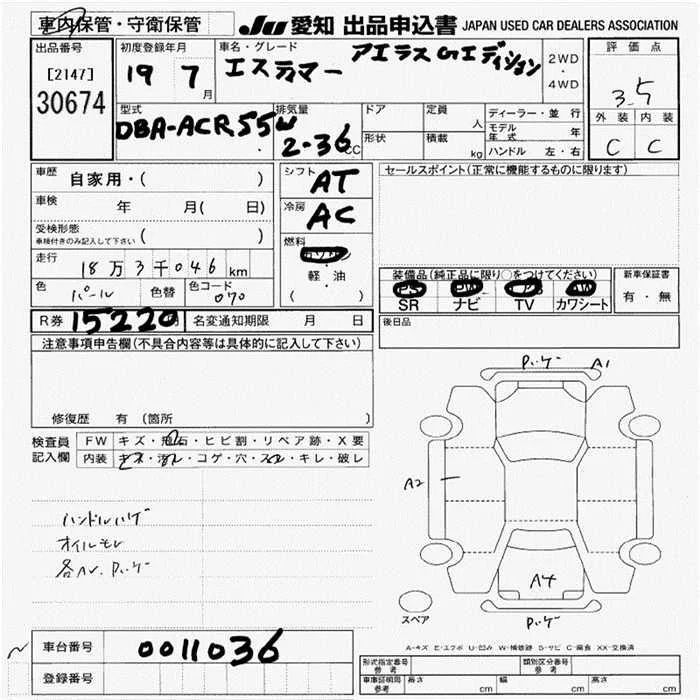 車内保管・守衛保管
JU 愛知 出品申込書 JAPAN USED CAR DEALERS ASSOCIATION
出品番号
[2147]
30674
初度登録年月
19 7 月
車名・グレード
エスティマー アエラスGエディション
2WD
・
4WD
評価点
3.5
外装 内装
C C
型式
DBA-ACR55W
排気量
2-36 CC
ドア
定員 人
形状
積載 kg
ディーラー・並行
モデル年式 年
ハンドル 左・右
車歴 自家用・( )
車検 年 月( 日)
受検形態
車検付きのみ記入して下さい ( )
走行 18万3千046 km
色 パール 色替 色コード 070
シフト AT
冷房 AC
燃料
軽・油
( )
セールスポイント(正常に機能するものに限ります)
装備品(純正品に限り○をつけてください)
PS PW AW
SR ナビ TV カワシート
新車保証書
有・無
R券 15220 円 名変通知期限 月 日
後日品
注意事項申告欄(不具合内容等は具体的に記入して下さい)
修復歴 有 (箇所 )
検査員記入欄
FW キズ・飛石・ヒビ割・リペア跡・X要
内装 キズ・汚れ・コゲ・穴・スレ・キレ・破レ
ハンドルハゲ
オイルモレ
各AV. P.ハゲ
P.ハゲ A1
A2
A4
P.ハゲ
スペア
A-キズ E-エクボ U-凹み W-補修跡 S-サビ C-腐食 XX-交換済
車台番号 0011036
登録番号
形式指定番号 参考
類別区分番号 参考
車庫証明用 参考 長さ cm 幅 cm 高さ cm